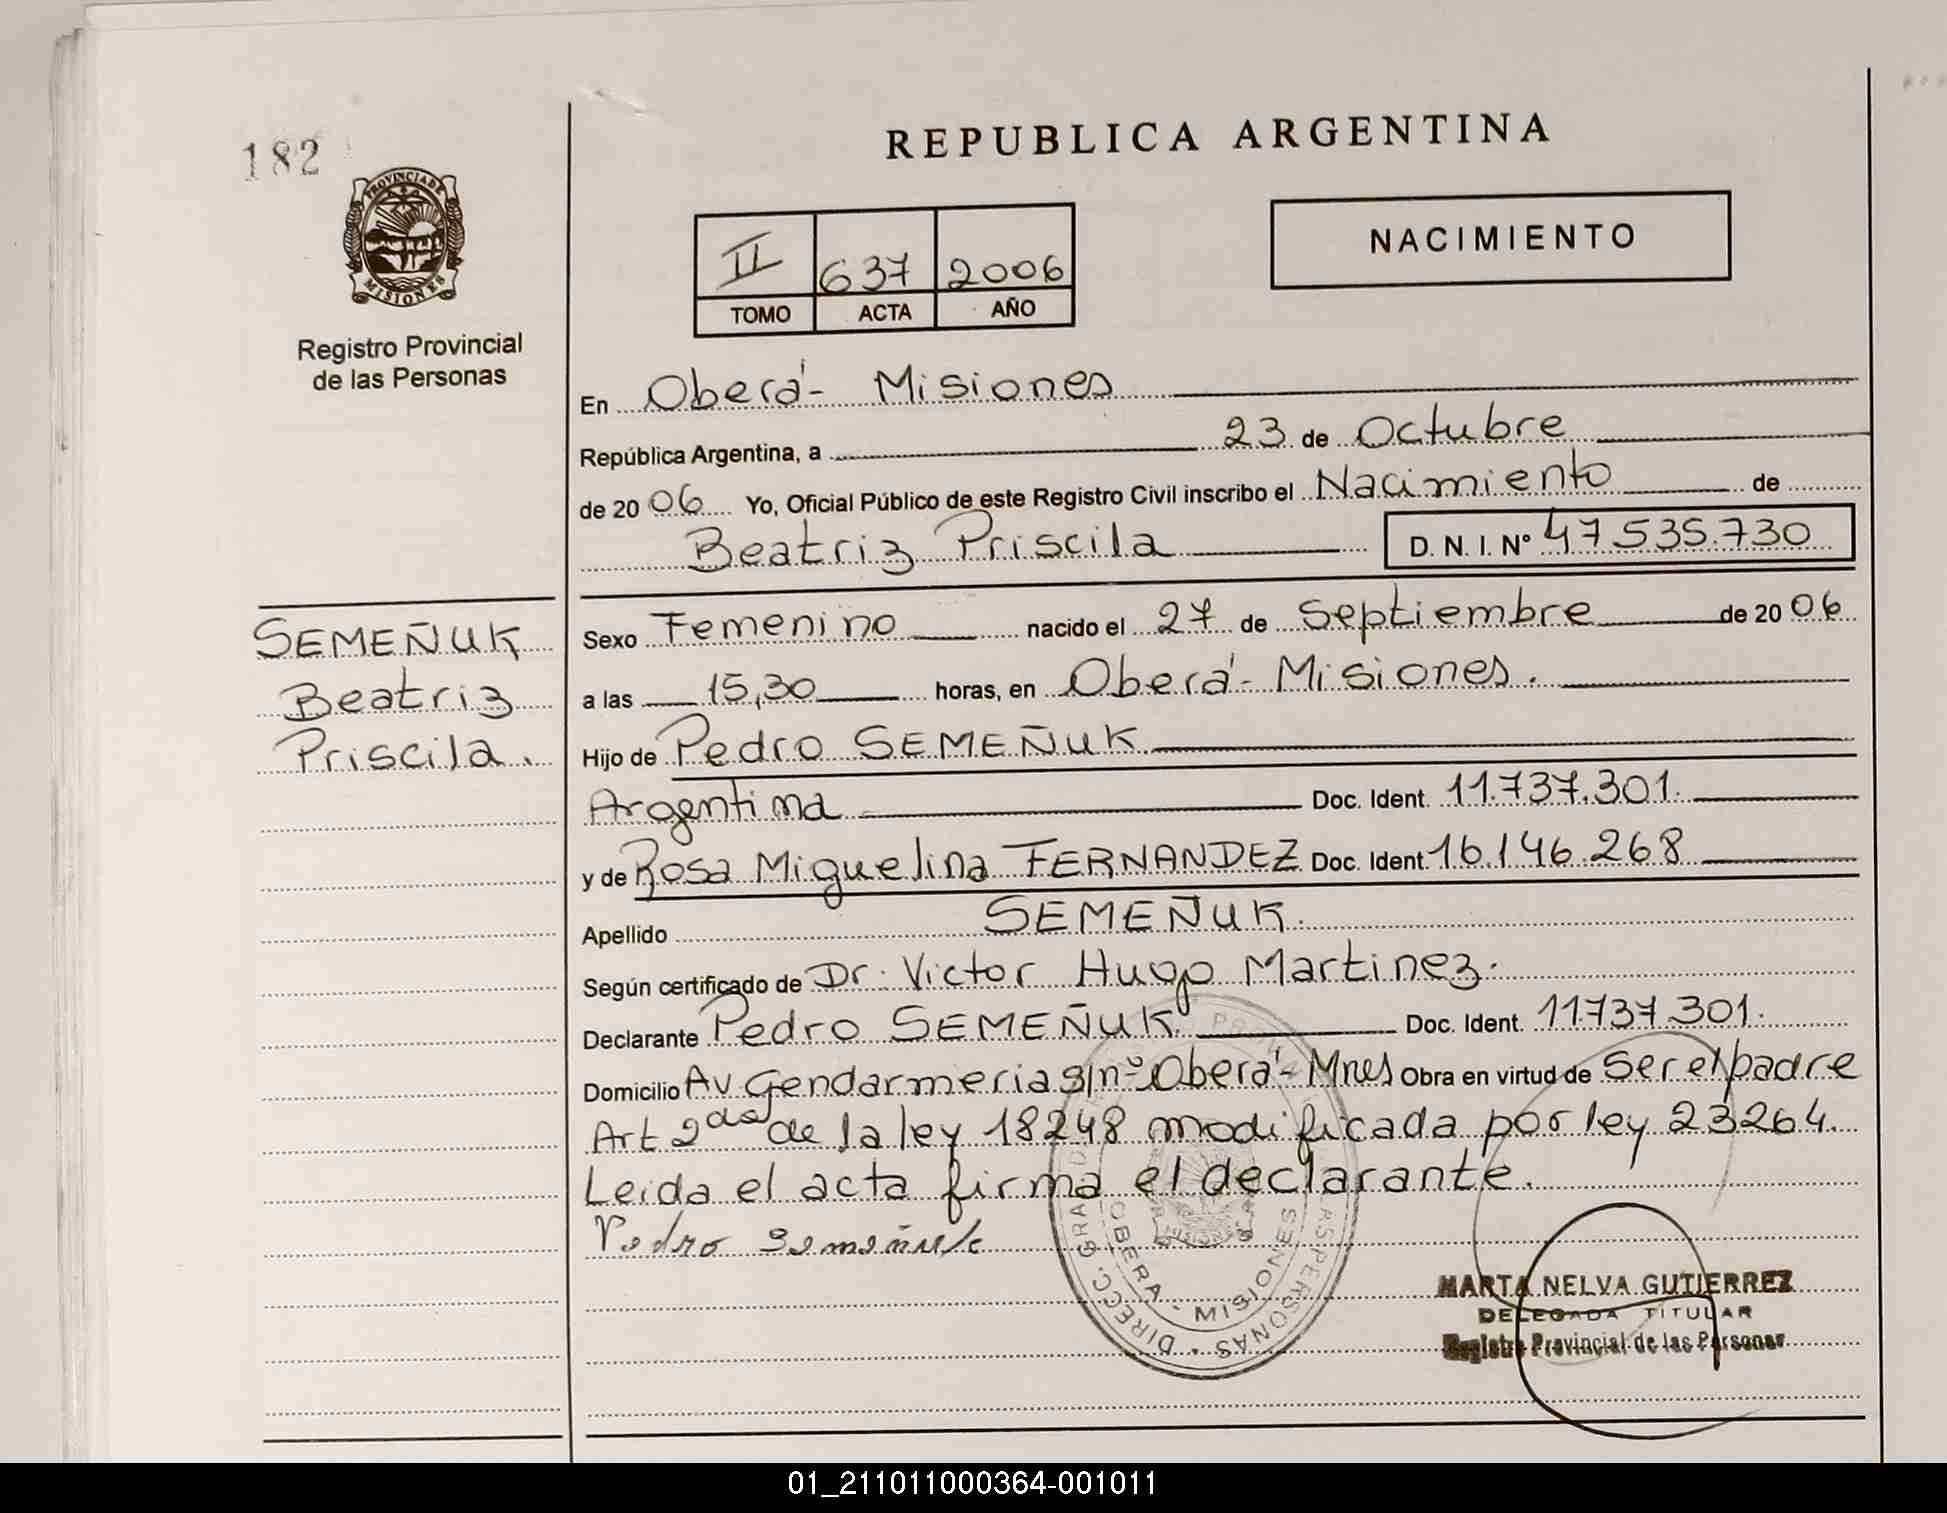 182
REPUBLICA ARGENTINA
PROVINCIA DE
MISIONES
Registro Provincial
de las Personas
II 637 2006
TOMO ACTA AÑO
NACIMIENTO
En Oberá - Misiones
República Argentina, a 23 de Octubre
de 2006 Yo, Oficial Público de este Registro Civil inscribo el Nacimiento de
Beatriz Priscila D. N. I. Nº 47.535.730
SEMEÑUK
Beatriz
Priscila.
Sexo Femenino nacido el 27 de Septiembre de 2006
a las 15,30 horas, en Oberá - Misiones.
Hijo de Pedro SEMEÑUK
Argentina Doc. Ident. 11.737.301.
y de Rosa Miguelina FERNANDEZ Doc. Ident. 16.146.268
Apellido SEMEÑUK.
Según certificado de Dr. Victor Hugo Martinez.
Declarante Pedro SEMEÑUK Doc. Ident. 11.737.301.
Domicilio Av Gendarmeria s/nº Oberá - Mnes Obra en virtud de Ser el padre
Art 2do de la ley 18248 modificada por ley 23264.
Leida el acta firma el declarante.
Pedro Semeñuk
OBERA - MISIONES
MARTA NELVA GUTIERREZ
DELEGADA TITULAR
Registro Provincial de las Personas
01_211011000364-001011